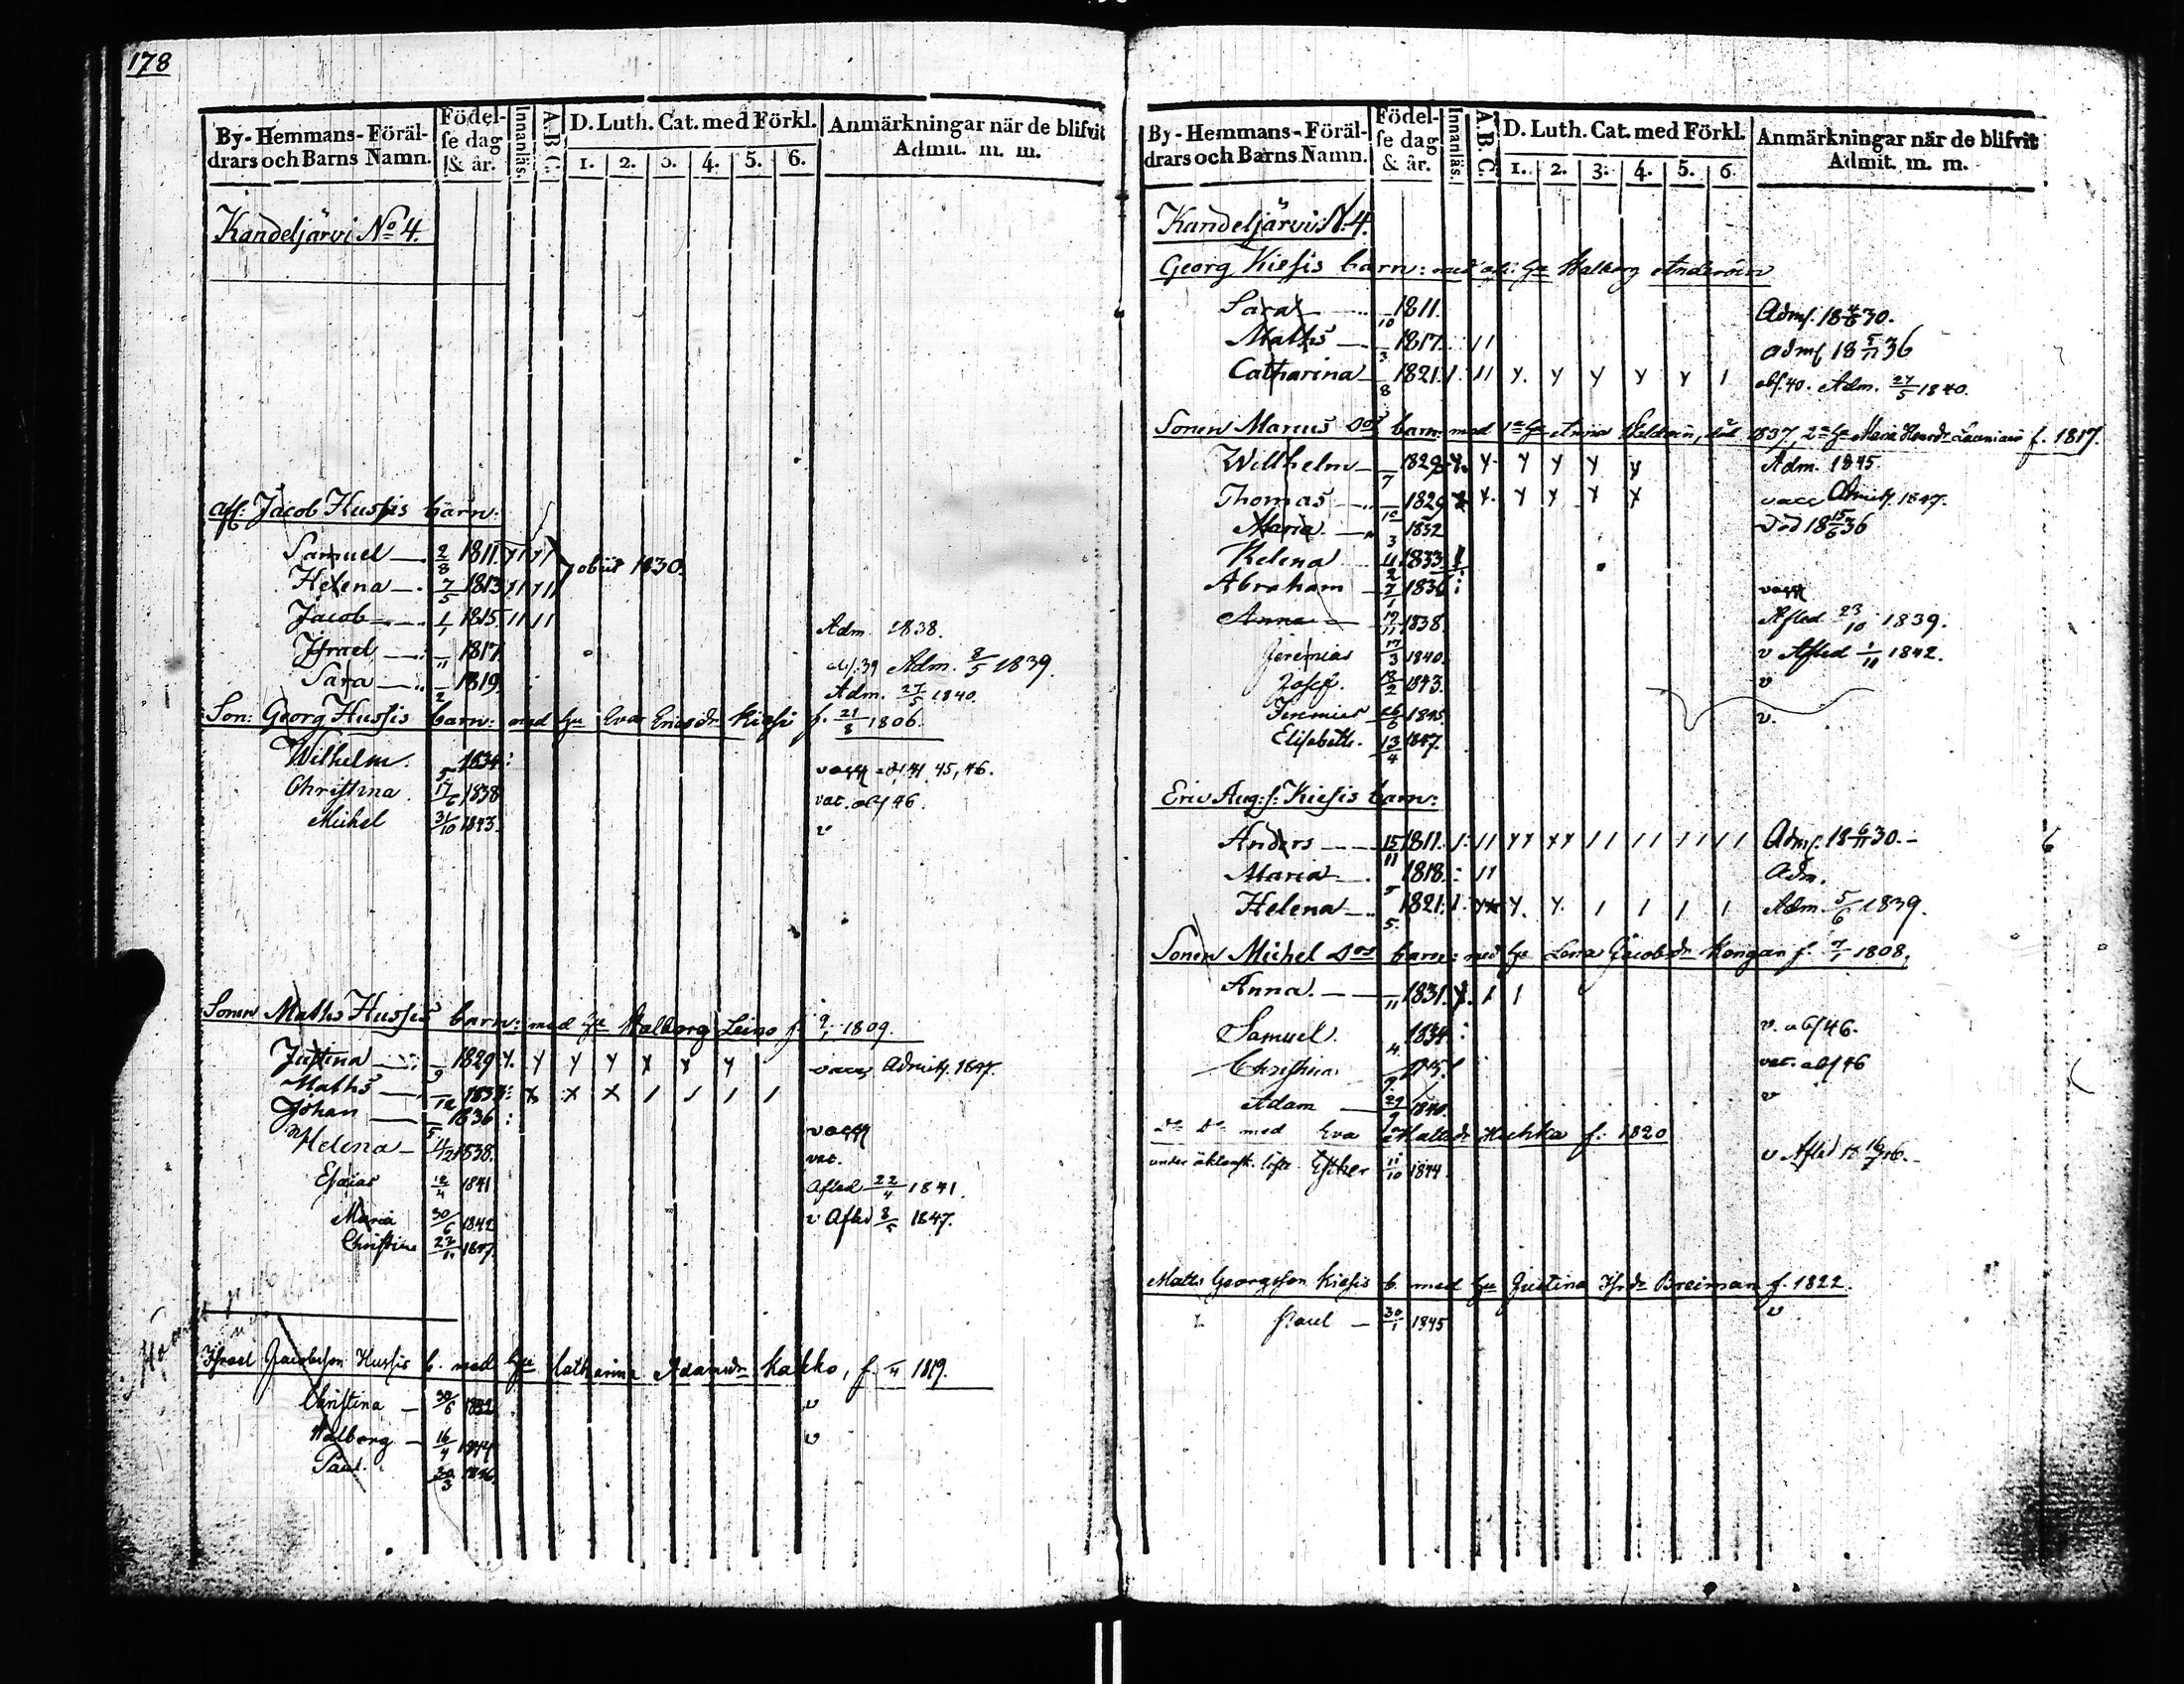 178
By-Hemmans-Föräl-
drars och Barns Namn.
Födel-
se dag
& år.
Innanläs.
A.B.C.
D. Luth. Cat. med Förkl.
1. 2. 3. 4. 5. 6.
Anmärkningar när de blifvit
Admit. m. m.
Kandeljärvi No 4.
aff: Jacob Hussis barn:
Samuel 2/8 1811
Helena 7/5 1813 obiit 1830.
Jacob 1/1 1815 Adm. 1838.
Israel /11 1817 abs. 39 Adm. 8/5 1839.
Sara /2 1819 Adm. 27/5 1840.
Son: Georg Hussis barn: med hu Eva Ericsdr Kiesi f. 21/8 1806.
Wilhelm /5 1834 45, 46.
Christina 17/6 1838 vac. abs 46.
Michel 31/10 1843. v
Sonen Maths Hussis barn: med hu Walborg Leino f. 1809.
Justina /9 1829 vacc Admitt. 1847.
Maths /12
Johan /5 1836
Helena 1838. vac.
Esaias 12/4 1841 Afled 22/4 1841.
Maria 30/6 1842 v Afled 8/5 1847.
Christina 1847.
Israel Jacobsson Hussis b. med hu Catharina Adamsdr Kakko, f. /4 1819.
Christina 30/6 v
Walborg 16/4 1844 v
Paul. 30/3 1846.
By-Hemmans-Föräl-
drars och Barns Namn.
Födel-
se dag
& år.
Innanläs.
A.B.C.
D. Luth. Cat. med Förkl.
1. 2. 3. 4. 5. 6.
Anmärkningar när de blifvit
Admit. m. m.
Kandeljärvi N. 4.
Georg Kiesis barn: med afl: hu Walborg
Sara /10 1811. Adms. 30.
Maths /3 1817. adms 18 5/11 36
Catharina /8 1821. abs. 40. Adm. 27/5 1840.
Sonen Marcus Dos barn med 1a hu Anna död 1837, 2a hu Maria f. 1817.
Willhelm /7 1829 Adm. 1845.
Thomas 1829 vacc Admitt. 1847.
Maria /3 1832 Död 18 15/6 36
Helena 1833
Abraham 7/1 1836
Anna 19/11 1838. Afled 23/10 1839.
Jeremias 17/3 1840. v Afled 1/11 1842.
Josef. 18/2 1843. v
Jeremias 26/6 1845. v.
Elisabeth. 13/4 1847.
Eric Aug:s: Kiesis barn:
Anders 15/11 1811. Adms. 18 6/11 30.
Maria /5 1818. Adm.
Helena /5. 1821. Adm. 5/6 1839.
Sonen Michel Dos barn: med hu Lena Jacobsdr Kongan f. 7/1 1808.
Anna. /11 1831.
Samuel. /4 1834 v. abs 46.
Christina vac. abs 46
Adam 29/9 1840. v
Do Do med Eva Matsdr f: 1820
under äktensk. löfte Esther 11/10 1844 v Afled
Maths Georgsson Kiesis b. med hu Justina Isrdr Breiman f. 1822.
Paul 30/1 1845 v